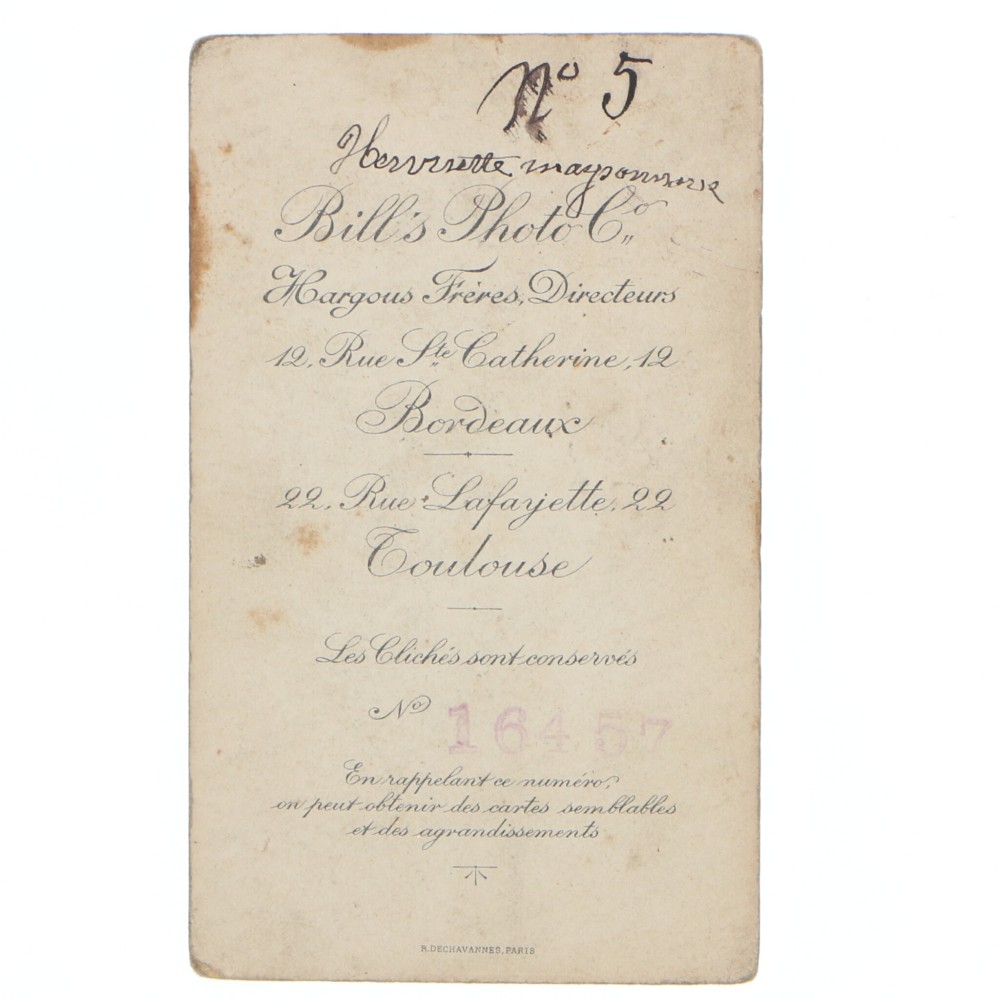 Nº 5
Henriette
Bill's Photo Cº
Hargous Frères, Directeurs
12, Rue Ste Catherine, 12
Bordeaux
22, Rue Lafayette, 22
Toulouse
Les Clichés sont conservés
Nº 16457
En rappelant ce numéro,
on peut obtenir des cartes semblables
et des agrandissements
R. DECHAVANNES, PARIS